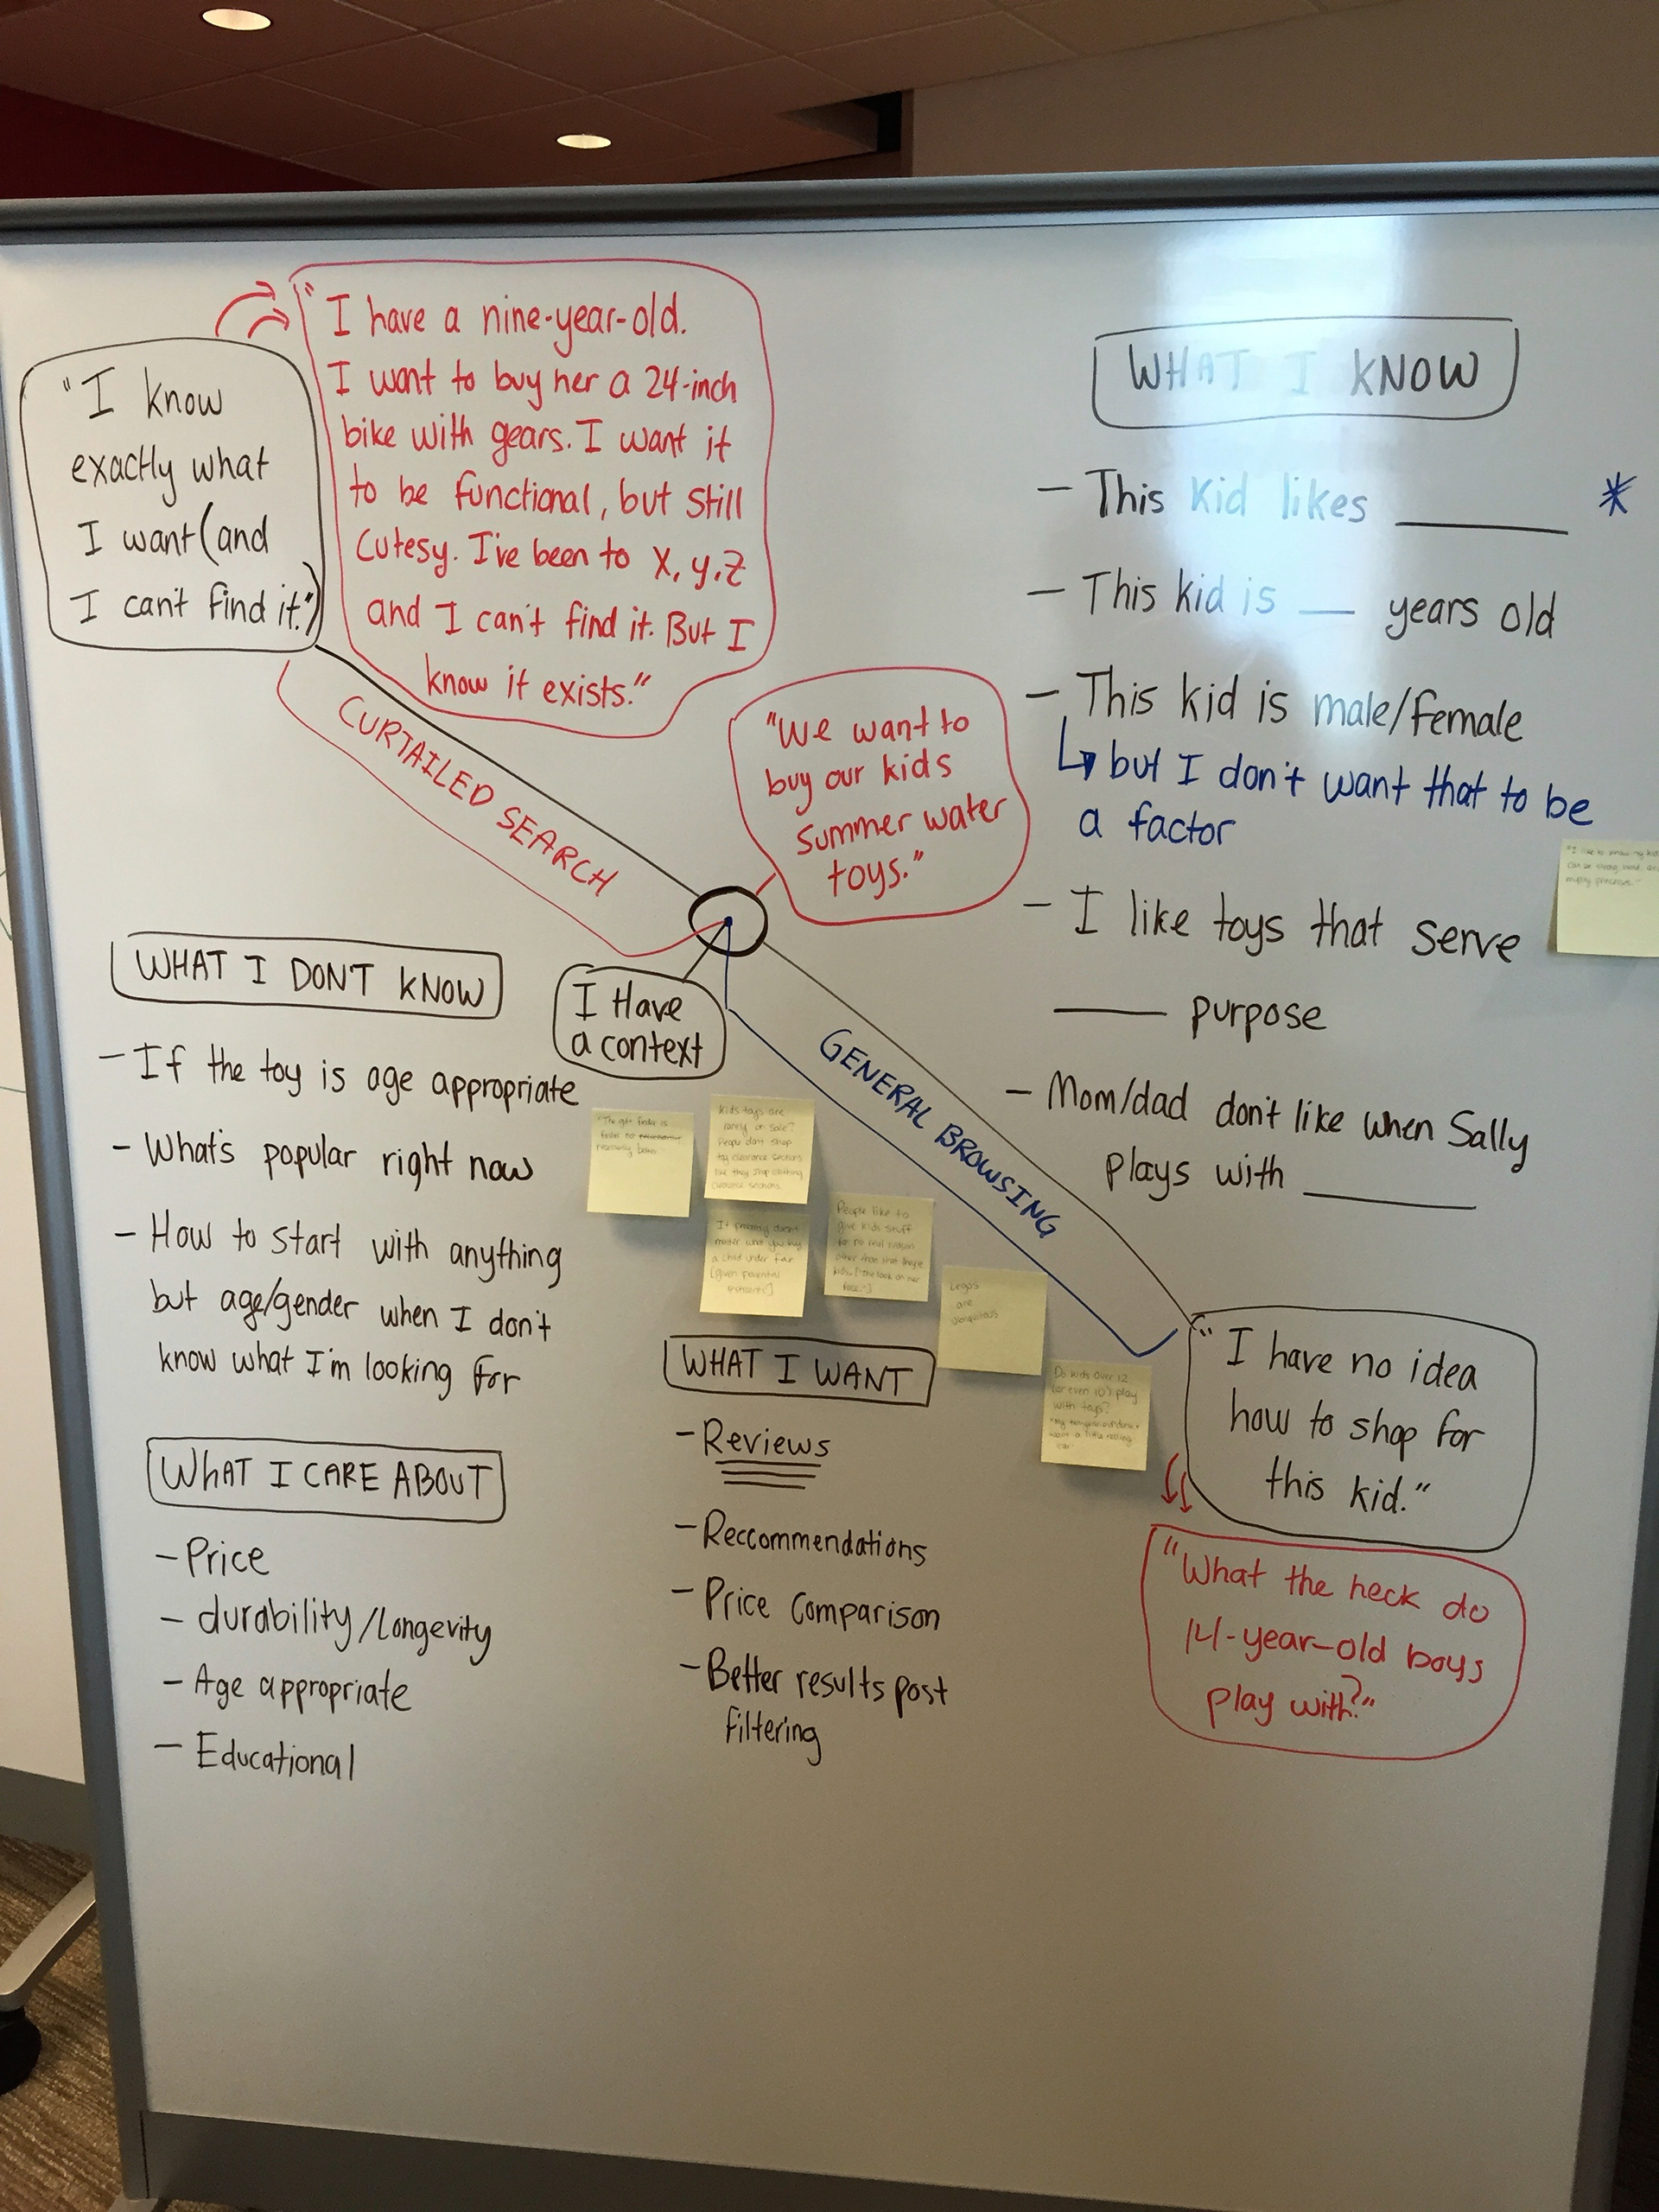 "I know
exactly what
I want (and
I can't find it.")
"I have a nine-year-old.
I want to buy her a 24-inch
bike with gears. I want it
to be functional, but still
cutesy. I've been to x, y, z
and I can't find it. But I
know it exists."
CURTAILED SEARCH
"We want to
buy our kids
summer water
toys."
I Have
a context
GENERAL BROWSING
"I have no idea
how to shop for
this kid."
"What the heck do
14-year-old boys
play with?"
WHAT I KNOW
- This kid likes ______ *
- This kid is ___ years old
- This kid is male/female
but I don't want that to be
a factor
- I like toys that serve
_____ purpose
- Mom/dad don't like when Sally
plays with ______
"I like to know my kid
can be strong,
princess."
WHAT I DON'T KNOW
- If the toy is age appropriate
- What's popular right now
- How to start with anything
but age/gender when I don't
know what I'm looking for
WHAT I CARE ABOUT
- Price
- durability/longevity
- Age appropriate
- Educational
"The gift finder is
Kids toys are
rarely on sale?
People don't shop
toy clearance sections
like they shop clothing
clearance sections.
It probably doesn't
matter what you buy
a child under four
[given parental
People like to
give kids stuff
for no real reason
other than that they're
kids. ["the look on her
face."]
Legos
are
ubiquitous
Do kids over 12
(or even 10) play
with toys?
"My ten-year-old doesn't
want a little
car"
WHAT I WANT
- Reviews
- Reccommendations
- Price Comparison
- Better results post
filtering